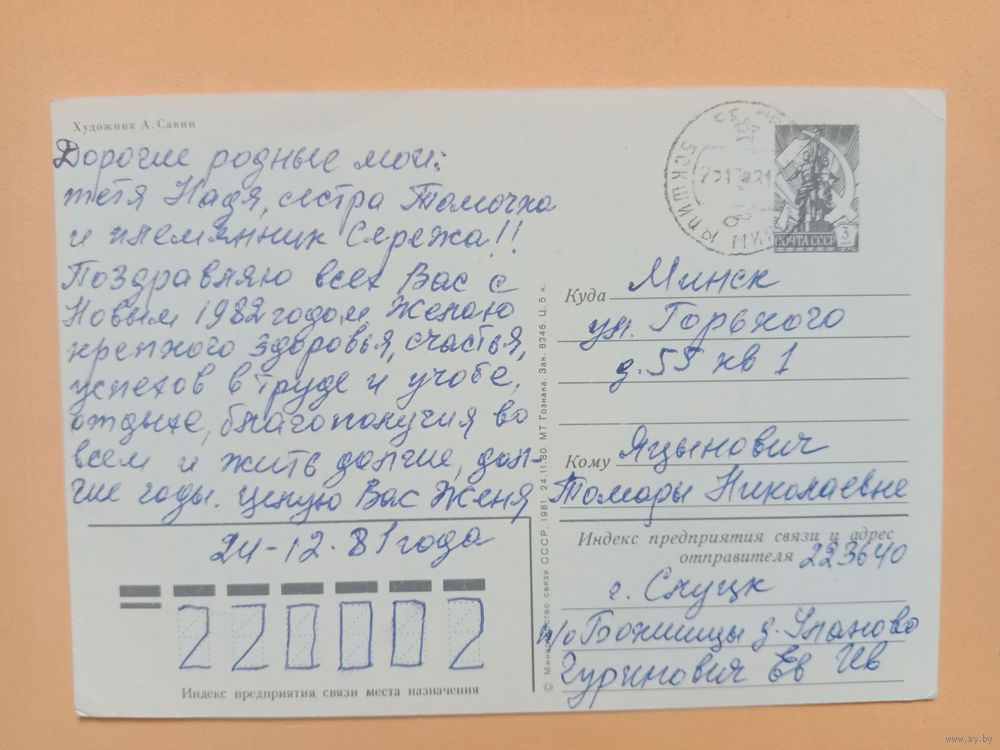 Художник А. Савин
Дорогие родные мои:
тетя Надя, сестра Томочка
и племянник Сережа!!
Поздравляю всех Вас с
Новым 1982 годом. Желаю
крепкого здоровья, счастья,
успехов в труде и учебе,
отдыхе, благополучия во
всем и жить долгие, дол-
гие годы. целую Вас Женя
24-12-81 года
220002
Индекс предприятия связи места назначения
© Министерство связи СССР, 1981. 24.11.80. МТ Гознака. Зак. 8246. Ц. 5 к.
ПОЧТА СССР 3
Куда Минск
ул. Горького
д. 55 кв 1
Кому Яцынович
Томары Николаевне
Индекс предприятия связи и адрес
отправителя 223640
г. Слуцк
п/о Бокшицы д. Уланово
Гуринович Ев Ив
www.ay.by